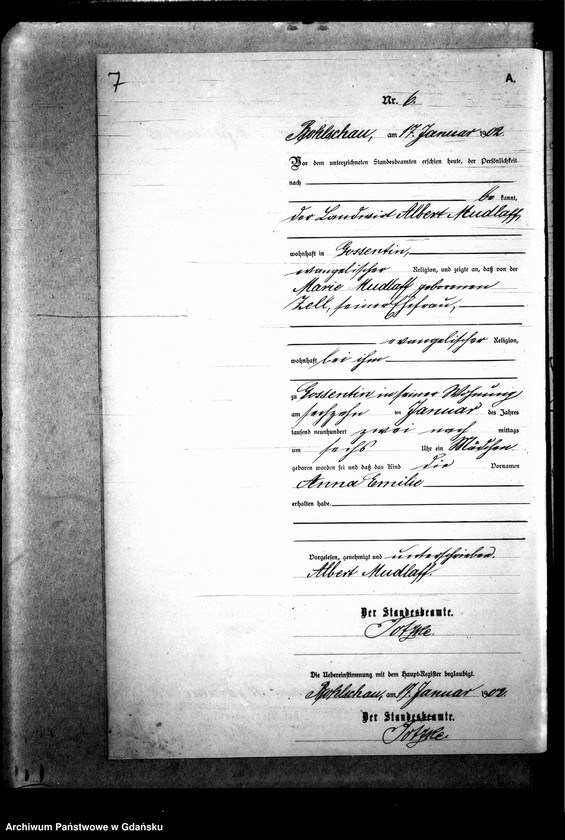 7
A.
Nr. 6.
Bohlschau, am 17. Januar 1902.
Vor dem unterzeichneten Standesbeamten erschien heute, der Persönlichkeit
nach
be kannt,
der Landwirt Albert Mudlaff,
wohnhaft in Gossentin,
evangelischer Religion, und zeigte an, daß von der
Marie Mudlaff geborenen
Zell, seiner Ehefrau,
evangelischer Religion,
wohnhaft bei ihm
zu Gossentin in seiner Wohnung
am sechzehn ten Januar des Jahres
tausend neunhundert zwei nach mittags
um sechs Uhr ein Mädchen
geboren worden sei und daß das Kind die Vornamen
Anna Emilie
erhalten habe.
Vorgelesen, genehmigt und unterschrieben.
Albert Mudlaff.
Der Standesbeamte.
Die Uebereinstimmung mit dem Haupt-Register beglaubigt.
Bohlschau, am 17. Januar 1902.
Der Standesbeamte.
Archiwum Państwowe w Gdańsku